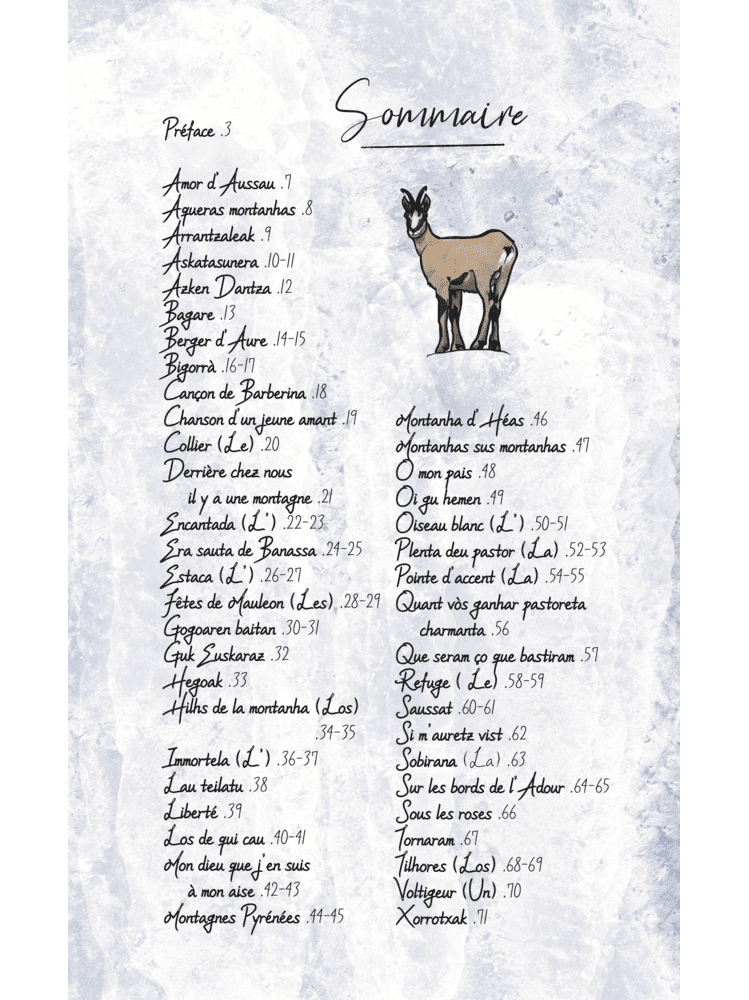 Sommaire
Préface .3
Amor d'Aussau .7
Aqueras montanhas .8
Arrantzaleak .9
Askatasunera .10-11
Azken Dantza .12
Bagare .13
Berger d'Aure .14-15
Bigorrà .16-17
Cançon de Barberina .18
Chanson d'un jeune amant .19
Collier (Le) .20
Derrière chez nous
il y a une montagne .21
Encantada (L') .22-23
Era sauta de Banassa .24-25
Estaca (L') .26-27
Fêtes de Mauleon (Les) .28-29
Gogoaren baitan .30-31
Guk Euskaraz .32
Hegoak .33
Hilhs de la montanha (Los)
.34-35
Immortela (L') .36-37
Lau teilatu .38
Liberté .39
Los de qui cau .40-41
Mon dieu que j'en suis
à mon aise .42-43
Montagnes Pyrénées .44-45
Montanha d'Héas .46
Montanhas sus montanhas .47
O mon pais .48
Oi gu hemen .49
Oiseau blanc (L') .50-51
Plenta deu pastor (La) .52-53
Pointe d'accent (La) .54-55
Quant vòs ganhar pastoreta
charmanta .56
Que seram ço que bastiram .57
Refuge ( Le) .58-59
Saussat .60-61
Si m'auretz vist .62
Sobirana (La) .63
Sur les bords de l'Adour .64-65
Sous les roses .66
Tornaram .67
Tilhores (Los) .68-69
Voltigeur (Un) .70
Xorrotxak .71